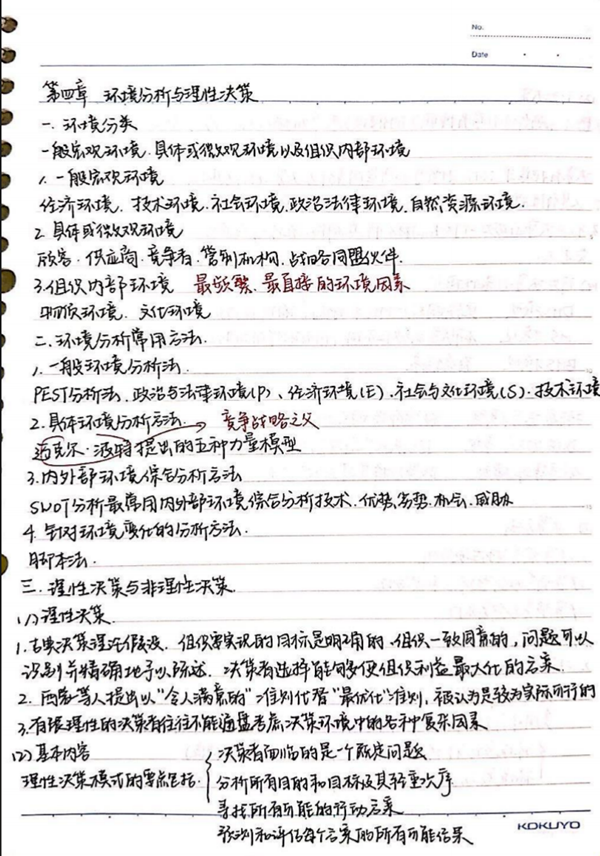 No.
Date
第四章 环境分析与理性决策
一.环境分类
一般宏观环境.具体或微观环境以及组织内部环境
1.一般宏观环境
经济环境.技术环境.社会环境.政治法律环境.自然资源环境.
2.具体或微观环境
顾客.供应商.竞争者.管制机构.战略同盟伙伴.
3.组织内部环境 最频繁.最直接的环境因素
物质环境.文化环境
二.环境分析常用方法.
1.一般环境分析法.
PEST分析法.政治与法律环境(P)、经济环境(E).社会与文化环境(S).技术环境
2.具体环境分析方法. → 竞争战略之父
迈克尔·波特提出的五种力量模型
3.内外部环境综合分析方法
SWOT分析最常用内外部环境综合分析技术.优势.劣势.机会.威胁
4.针对环境变化的分析方法.
脚本法.
三.理性决策与非理性决策.
(1)理性决策.
1.古典决策理论假设.组织要实现的目标是明确的.组织一致同意的,问题可以
识别并精确地予以陈述.决策者选择能够使组织利益最大化的方案
2.西蒙等人提出以“令人满意的”准则代替“最优化”准则,被认为是较为实际可行的
3.有限理性的决策者往往不能通盘考虑决策环境中的各种复杂因素
(2)基本内容 决策者面临的是一个既定问题
理性决策模式的要点包括: 分析所有目的和目标及其轻重次序
寻找所有可能的行动方案
预测和评估每个方案的所有可能结果
KOKUYO